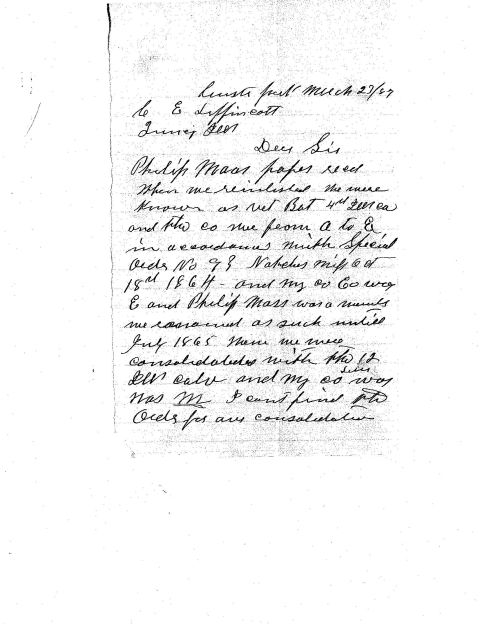 March 23/87
C E Lippincott
Quincy Ills
Dear Sir
Philip Maas papers recd
When we reinlisted we were
known as vet Bat 4th Ills ca
and the co we from A to E
in accordance with Special
Order No 93 Natches Miss Oct
18rd 1864 - and my co Co was
E and Philip Mass was a memb
we remained as such untill
July 1865 when we were
consolidated with the 12
Ills calv and my co was
was M I cant find the
Order for our consolidation